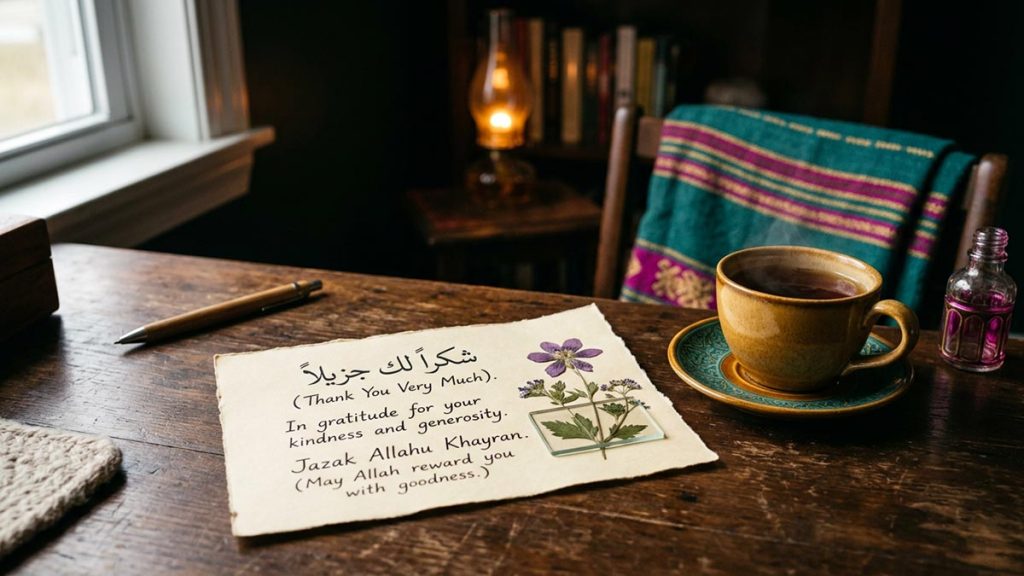 شكراً لك جزيلاً
(Thank You Very Much).
In gratitude for your
kindness and generosity.
Jazak Allahu Khayran.
(May Allah reward you
with goodness.)